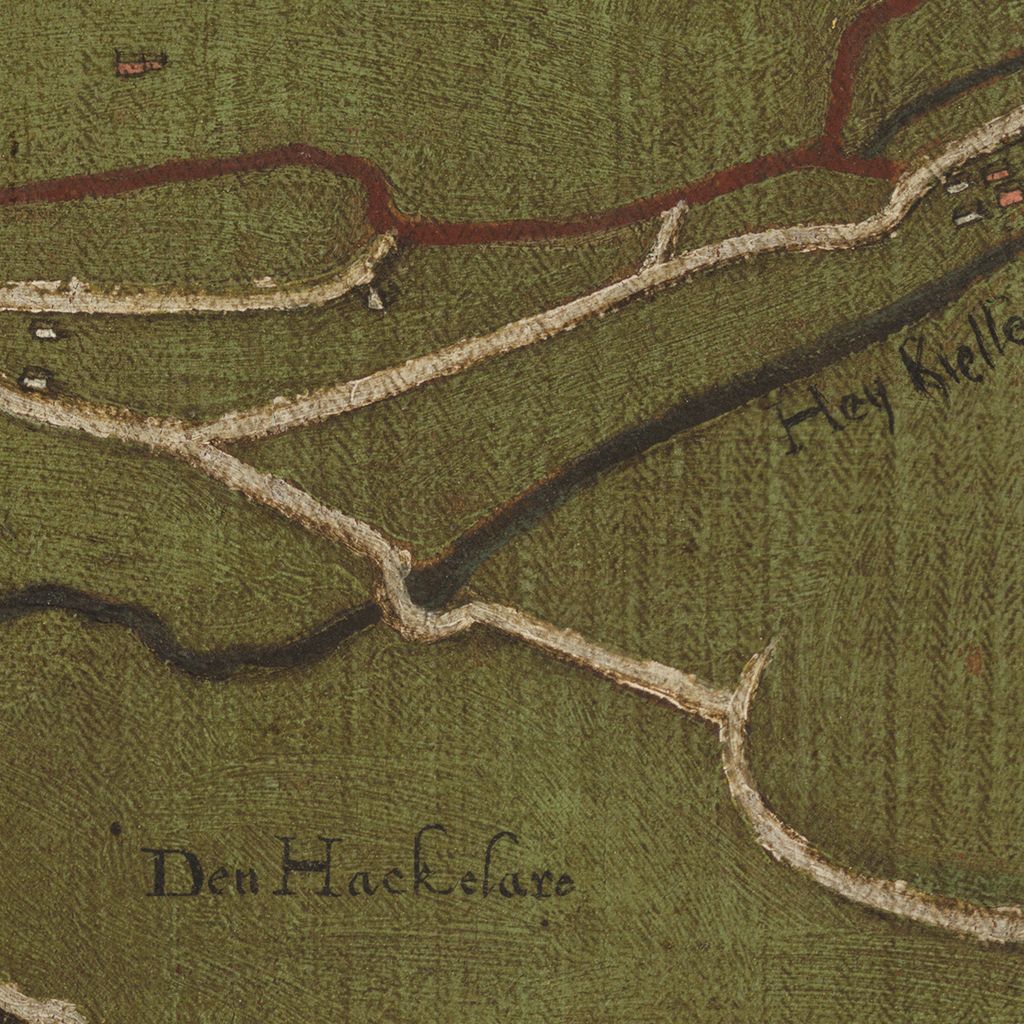 Hey Kielle
Den Hackelare